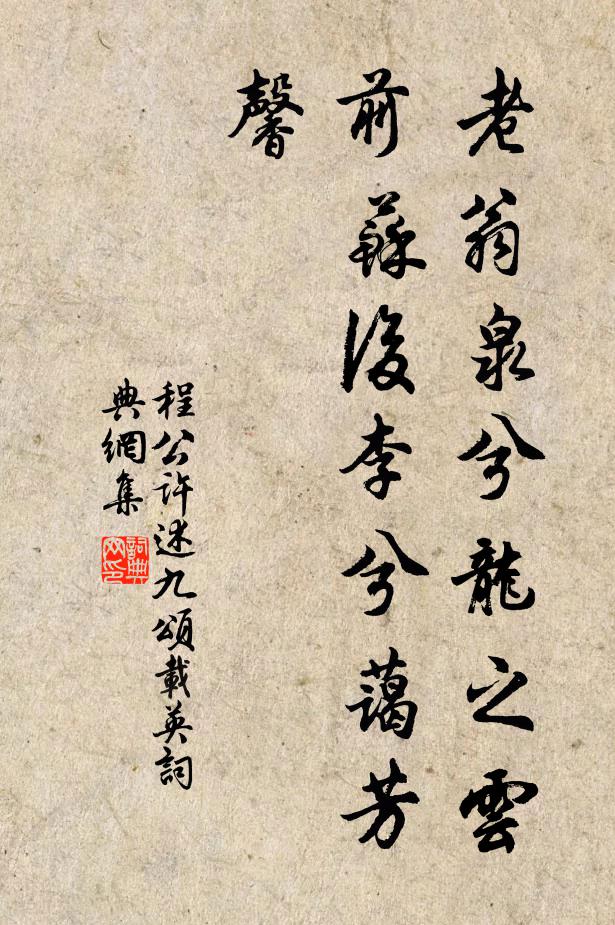 老翁泉兮龍之雲
前蘇後李兮藹芳
馨
程公許述九頌載英詞
典網集
詞典網印